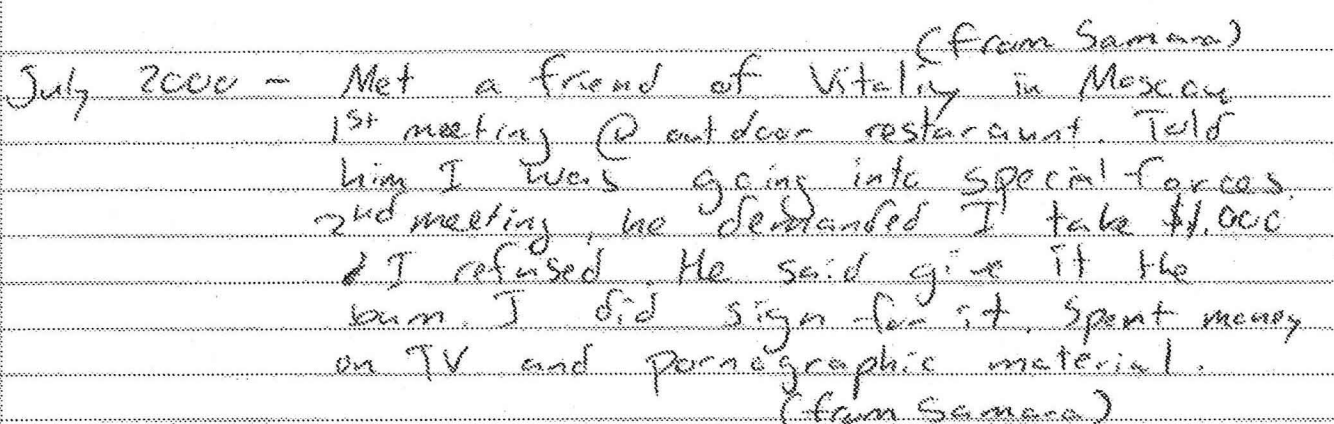 (from Samara)
July 2000 - Met a friend of Vitaliy in Moscow
1st meeting @ outdoor restaraunt. Told
him I was going into special forces.
2nd meeting, he demanded I take $1,000
& I refused. He said give it the
bum. I did sign for it. Spent money
on TV and pornographic material.
(from Samara)